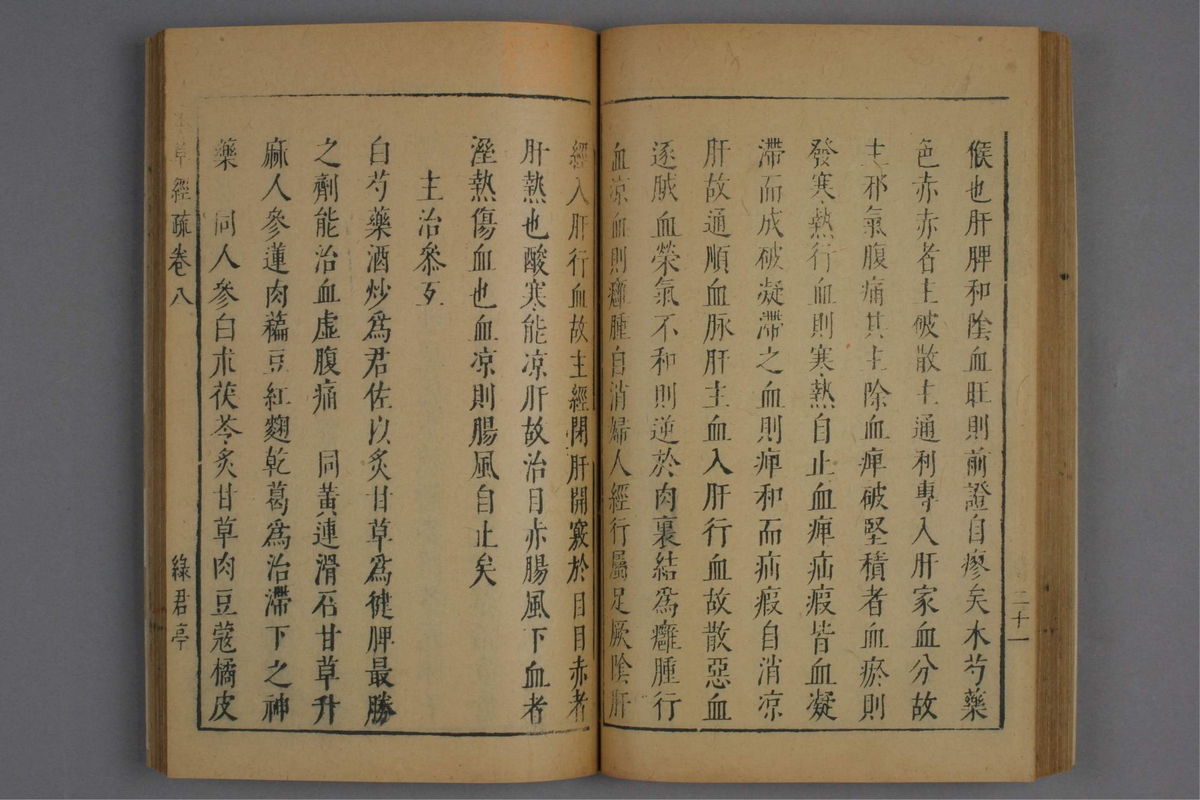 候也肝脾和陰血旺則前證自瘳矣木芍藥
色赤赤者主破散主通利專入肝家血分故
主邪氣腹痛其主除血痺破堅積者血瘀則
發寒熱行血則寒熱自止血痺疝瘕皆血凝
滯而成破凝滯之血則痺和而疝瘕自消涼
肝故通順血脉肝主血入肝行血故散惡血
逐賊血榮氣不和則逆於肉裏結為癰腫行
血涼血則癰腫自消婦人經行屬足厥陰肝
二十一
經入肝行血故主經閉肝開竅於目目赤者
肝熱也酸寒能凉肝故治目赤腸風下血者
溼熱傷血也血凉則腸風自止矣
主治叅互
白芍藥酒炒爲君佐以炙甘草爲健脾最勝
之劑能治血虛腹痛 同黃連滑石甘草升
麻人參蓮肉藊豆紅麴乾葛爲治滯下之神
藥 同人參白朮茯苓炙甘草肉豆蔻橘皮
草經疏卷八
綠君亭